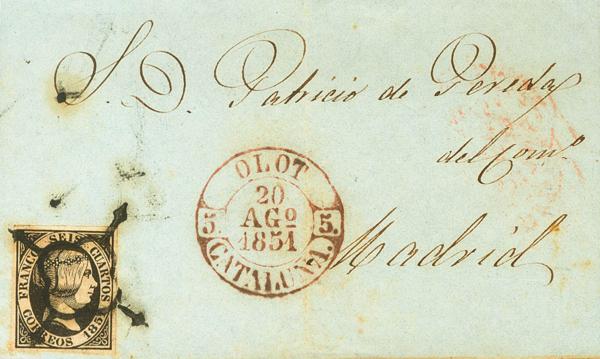 S. D. Patricio de Pereda
del Com.º
Madrid
OLOT
20
AGº
1851
5.
5.
CATALUÑA.
FRANCO
SEIS CUARTOS
CORREOS 1851